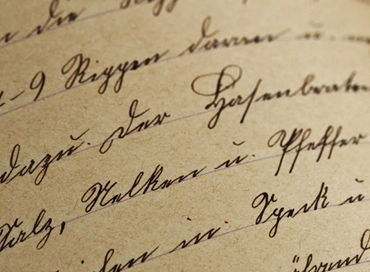 n die
-9 Rippen daran u.
dazu. Der Hasenbraten
Salz, Nelken u. Pfeffer
in Speck u